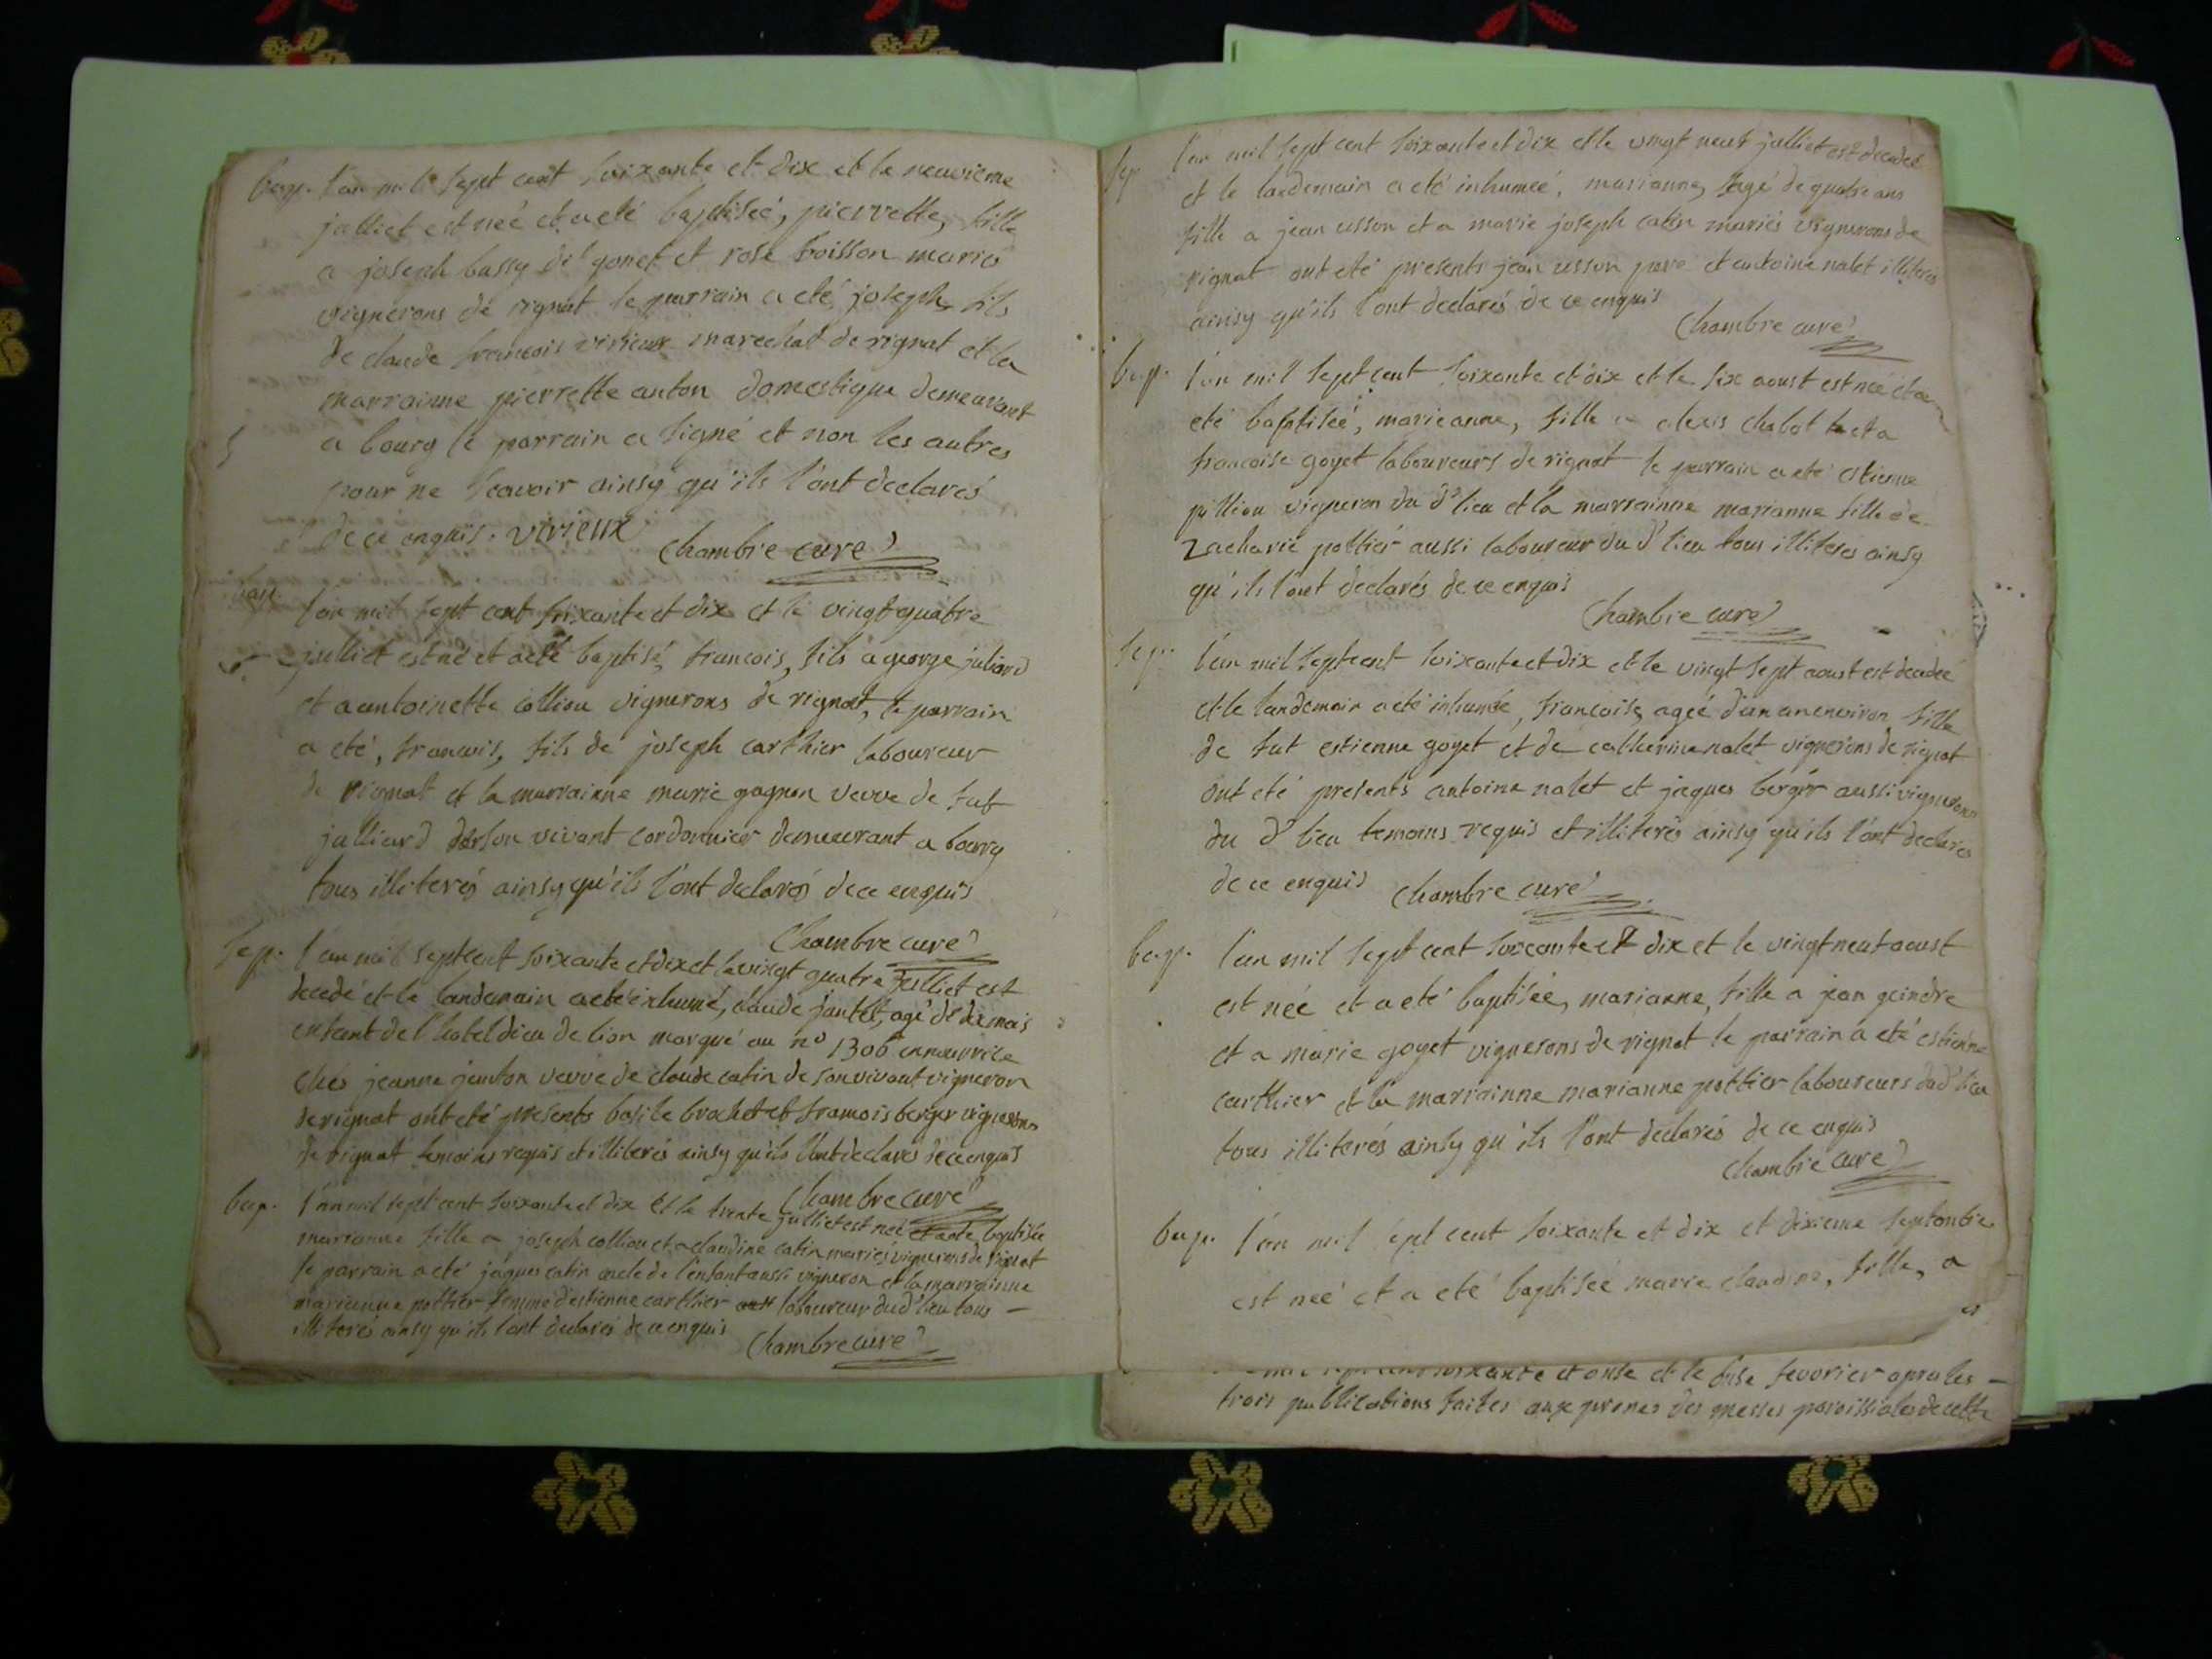 bap. l'an mil sept cent soixante et dix et le neuvieme
julliet est neé et a eté baptiseé, pierrette, fille
a joseph bussy dit gonet et rose boisson mariés
vignerons de rignat le parrain a eté, joseph, fils
de claude francois virieux marechal de rignat et la
marrainne pierrette anton domestique demeurant
a bourg le parrain a signé et non les autres
pour ne scavoir ainsy qu'ils l'ont declarés
de ce enquis. virieux
Chambre curé
bap. l'an mil sept cent soixante et dix et le vingt quatre
julliet est né et a eté baptisé, francois, fils a george juliard
et a antoinette colliou vignerons de rignat, le parrain
a eté, francois, fils de joseph carthier laboureur
de rignat et la marrainne marie gagnon verve de fut
julliard de son vivant cordonnier demeurant a bourg
tous illiterés ainsy qu'ils l'ont declarés de ce enquis
Chambre curé
sep. l'an mil sept cent soixante et dix et le vingt quatre julliet est
decedé et le landemain a eté inhumé, claude agé de mois
enfant de l'hotel dieu de lion marqué au no 1306 en nourrice
chés jeanne janton verve de claude catin de son vivant vigneron
de rignat ont eté presents basile brochet et francois berger vignerons
de rignat temoins requis et illiterés ainsy qu'ils l'ont declarés de ce enquis
Chambre curé
bap. l'an mil sept cent soixante et dix et le trente julliet est neé et a eté baptisée
marianne fille a joseph colliou et a claudine catin mariés vignerons de rignat
le parrain a eté jaques catin oncle de l'enfant aussi vigneron et la marrainne
marianne pottier femme d'estienne carthier laboureur du d' lieu tous —
illiterés ainsy qu'ils l'ont declarés de ce enquis
Chambre curé
sep. l'an mil sept cent soixante et dix et le vingt neuf julliet est decedeé
et le landemain a eté inhumeé, marianne, agé de quatre ans
fille a jean usson et a marie joseph catin mariés vignerons de
rignat ont eté presents jean usson pere et antoine nalet illiterés
ainsy qu'ils l'ont declarés de ce enquis
Chambre curé
bap. l'an mil sept cent soixante et dix et le six aoust est neé et a
eté baptiseé, marieanne, fille a alexis chabot et a
francoise goyet laboureurs de rignat le parrain a eté estienne
pilliou vigneron du d' lieu et la marrainne marianne fille de
zacharie pottier aussi laboureur du d' lieu tous illiterés ainsy
qu'ils l'ont declarés de ce enquis
Chambre curé
sep. l'an mil sept cent soixante et dix et le vingt sept aoust est decedeé
et le landemain a eté inhumée, francoise, ageé d'un an environ fille
de fut estienne goyet et de catherine nalet vignerons de rignat
ont eté presents antoine nalet et jaques berger aussi vignerons
du d' lieu temoins requis et illiterés ainsy qu'ils l'ont declarés
de ce enquis Chambre curé
bap. l'an mil sept cent soixante et dix et le vingt neuf aoust
est née et a eté baptisée, marianne, fille a jean geindre
et a marie goyet vignerons de rignat le parrain a eté estienne
carthier et la marrainne marianne pottier laboureurs du d' lieu
tous illiterés ainsy qu'ils l'ont declarés de ce enquis
Chambre curé
bap. l'an mil sept cent soixante et dix et dixieme septembre
est neé et a eté baptisée marie claudine, fille, a
soixante et onse et le onse fevorier apres les —
trois publications faites aux prones des messes paroissiales de cette